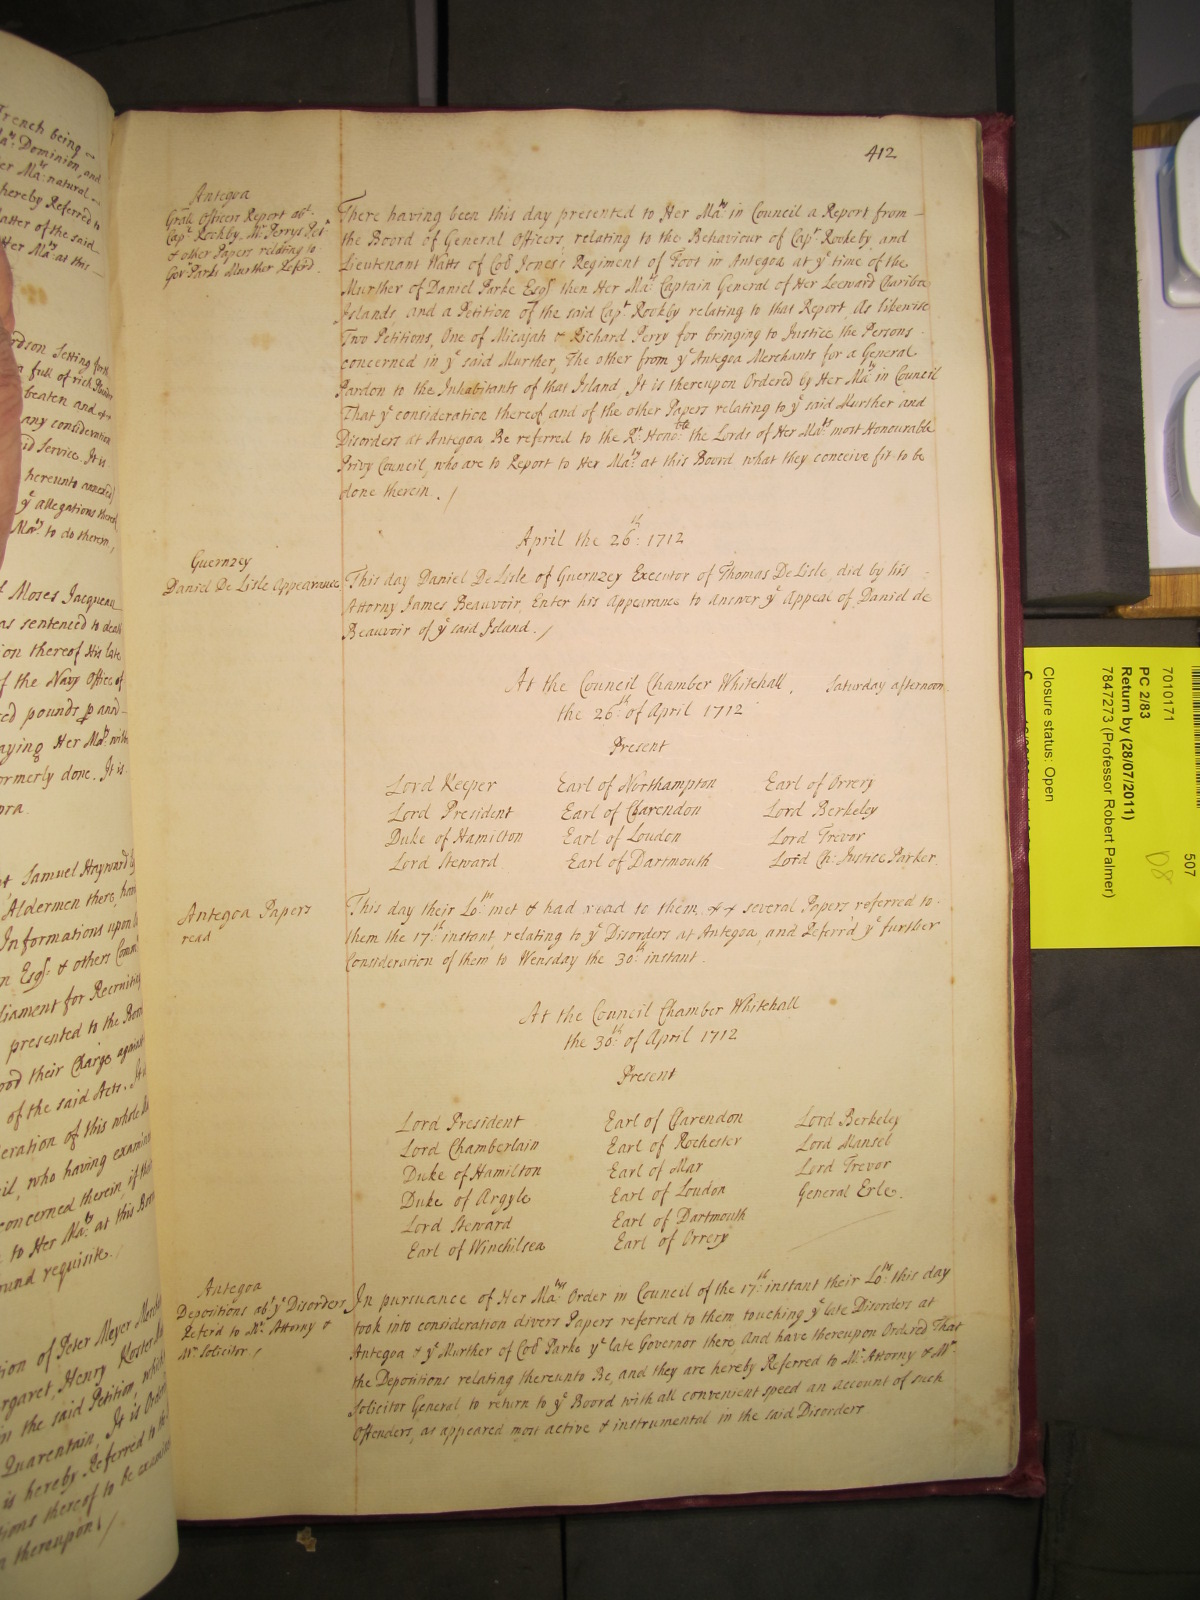 French being
Dominion, and
er Ma: natural
hereby Referred to
atter of the said
Her Ma:ty at this
rdson Setting forth
a full of rich
beaten and
any consideration
Service. It is
hereunto annexed
ye allegations thereof
Ma:ty to do therein,
Moses Jacqueau
as sentenced to death
ion thereof His late
f the Navy Office of
ed pounds p ann
aying Her Ma:ty
ormerly done. It is
pra
Samuel Hayward
Aldermen there,
Informations upon
Esqr: & others
liament for Recruiting
presented to the
their Charge against
of the said Acts.
eration of this whole
il, who having
concerned therein, if
to Her Ma:ty at this
ound requisite.
ion of Peter Meyer
rgaret, Henry
in the said Petition,
Quarentain, It is
is hereby Referred to
tions thereof to be
thereupon /
412
Antegoa
Genll Officers Report abt.
Capt Rookby, Mr Perrys Petn
& other Papers relating to
Govr Parks Murther Referd.
There having been this day presented to Her Ma:ty in Council a Report from
the Board of General Officers, relating to the Behaviour of Capt Rookeby, and
Lieutenant Watts of Coll Jones's Regiment of Foot in Antegoa at ye time of the
Murther of Daniel Parke Esqr then Her Ma:ts Captain General of Her Leeward Charibee
Islands, and a Petition of the said Capt Rookby relating to that Report, As likewise
Two Petitions, One of Micajah & Richard Perry for bringing to Justice the Persons
concerned in ye said Murther, The other from ye Antegoa Merchants for a General
Pardon to the Inhabitants of that Island, It is thereupon Ordered by Her Ma:ty in Council
That ye consideration thereof and of the other Papers relating to ye said Murther and
Disorders at Antegoa Be referred to the Rt Hono:ble the Lords of Her Ma:ts most Honourable
Privy Council, who are to Report to Her Ma:ty at this Board what they conceive fit to be
done therein. /
April the 26th: 1712
Guernzey
Daniel De Lisle Appearance
This day Daniel De Lisle of Guernzey Executor of Thomas De Lisle, did by his
Attorny James Beauvoir, Enter his Appearance to answer ye Appeal of Daniel de
Beauvoir of ye said Island. /
At the Council Chamber Whitehall, Saturday afternoon
the 26th of April 1712
Present
Lord Keeper Earl of Northampton Earl of Orrery
Lord President Earl of Clarendon Lord Berkeley
Duke of Hamilton Earl of Loudon Lord Trevor
Lord Steward Earl of Dartmouth Lord Ch: Justice Parker.
Antegoa Papers
read
This day their Lo:pps met & had read to them several Papers referred to
them the 17th: instant, relating to ye Disorders at Antegoa, and Referr'd ye further
Consideration of them to Wensday the 30th instant.
At the Council Chamber Whitehall
the 30th: of April 1712
Present
Lord President Earl of Clarendon Lord Berkeley
Lord Chamberlain Earl of Rochester Lord Mansel
Duke of Hamilton Earl of Mar Lord Trevor
Duke of Argyle Earl of Loudon General Erle.
Lord Steward Earl of Dartmouth
Earl of Winchilsea Earl of Orrery
Antegoa
Depositions abt ye Disorders
Referd to Mr. Attorny &
Mr Solicitor /
In pursuance of Her Ma:tys Order in Council of the 17th: instant their Lo:pps this day
took into consideration divers Papers referred to them, touching ye late Disorders at
Antegoa & ye Murther of Coll Parke ye late Governor there, And have thereupon Ordered That
the Depositions relating thereunto Be, and they are hereby Referred to Mr. Attorny & Mr.
Solicitor General to return to ye Board with all convenient speed an account of such
Offenders, as appeared most active & instrumental in the said Disorders
7010171
507
PC 2/83
Return by (28/07/2011)
7847273 (Professor Robert Palmer)
Closure status: Open
D8